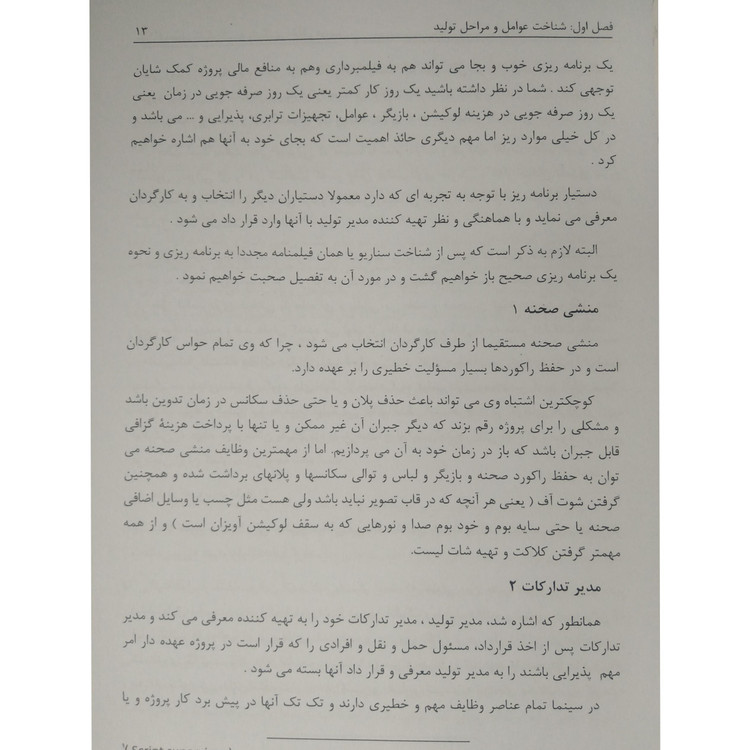 فصل اول: شناخت عوامل و مراحل تولید ۱۳
یک برنامه ریزی خوب و بجا می تواند هم به فیلمبرداری وهم به منافع مالی پروژه کمک شایان
توجهی کند . شما در نظر داشته باشید یک روز کار کمتر یعنی یک روز صرفه جویی در زمان یعنی
یک روز صرفه جویی در هزینه لوکیشن ، بازیگر ، عوامل، تجهیزات ترابری، پذیرایی و ... می باشد و
در کل خیلی موارد ریز اما مهم دیگری حائذ اهمیت است که بجای خود به آنها هم اشاره خواهیم
کرد .
دستیار برنامه ریز با توجه به تجربه ای که دارد معمولا دستیاران دیگر را انتخاب و به کارگردان
معرفی می نماید و با هماهنگی و نظر تهیه کننده مدیر تولید با آنها وارد قرار داد می شود .
البته لازم به ذکر است که پس از شناخت سناریو یا همان فیلمنامه مجددا به برنامه ریزی و نحوه
یک برنامه ریزی صحیح باز خواهیم گشت و در مورد آن به تفصیل صحبت خواهیم نمود .
منشی صحنه ۱
منشی صحنه مستقیما از طرف کارگردان انتخاب می شود ، چرا که وی تمام حواس کارگردان
است و در حفظ راکوردها بسیار مسؤلیت خطیری را بر عهده دارد.
کوچکترین اشتباه وی می تواند باعث حذف پلان و یا حتی حذف سکانس در زمان تدوین باشد
و مشکلی را برای پروژه رقم بزند که دیگر جبران آن غیر ممکن و یا تنها با پرداخت هزینهٔ گزافی
قابل جبران باشد که باز در زمان خود به آن می پردازیم. اما از مهمترین وظایف منشی صحنه می
توان به حفظ راکورد صحنه و بازیگر و لباس و توالی سکانسها و پلانهای برداشت شده و همچنین
گرفتن شوت آف ( یعنی هر آنچه که در قاب تصویر نباید باشد ولی هست مثل چسب یا وسایل اضافی
صحنه یا حتی سایه بوم و خود بوم صدا و نورهایی که به سقف لوکیشن آویزان است ) و از همه
مهمتر گرفتن کلاکت و تهیه شات لیست.
مدیر تدارکات ۲
همانطور که اشاره شد، مدیر تولید ، مدیر تدارکات خود را به تهیه کننده معرفی می کند و مدیر
تدارکات پس از اخذ قرارداد، مسئول حمل و نقل و افرادی را که قرار است در پروژه عهده دار امر
مهم پذیرایی باشند را به مدیر تولید معرفی و قرار داد آنها بسته می شود .
در سینما تمام عناصر وظایف مهم و خطیری دارند و تک تک آنها در پیش برد کار پروژه و یا